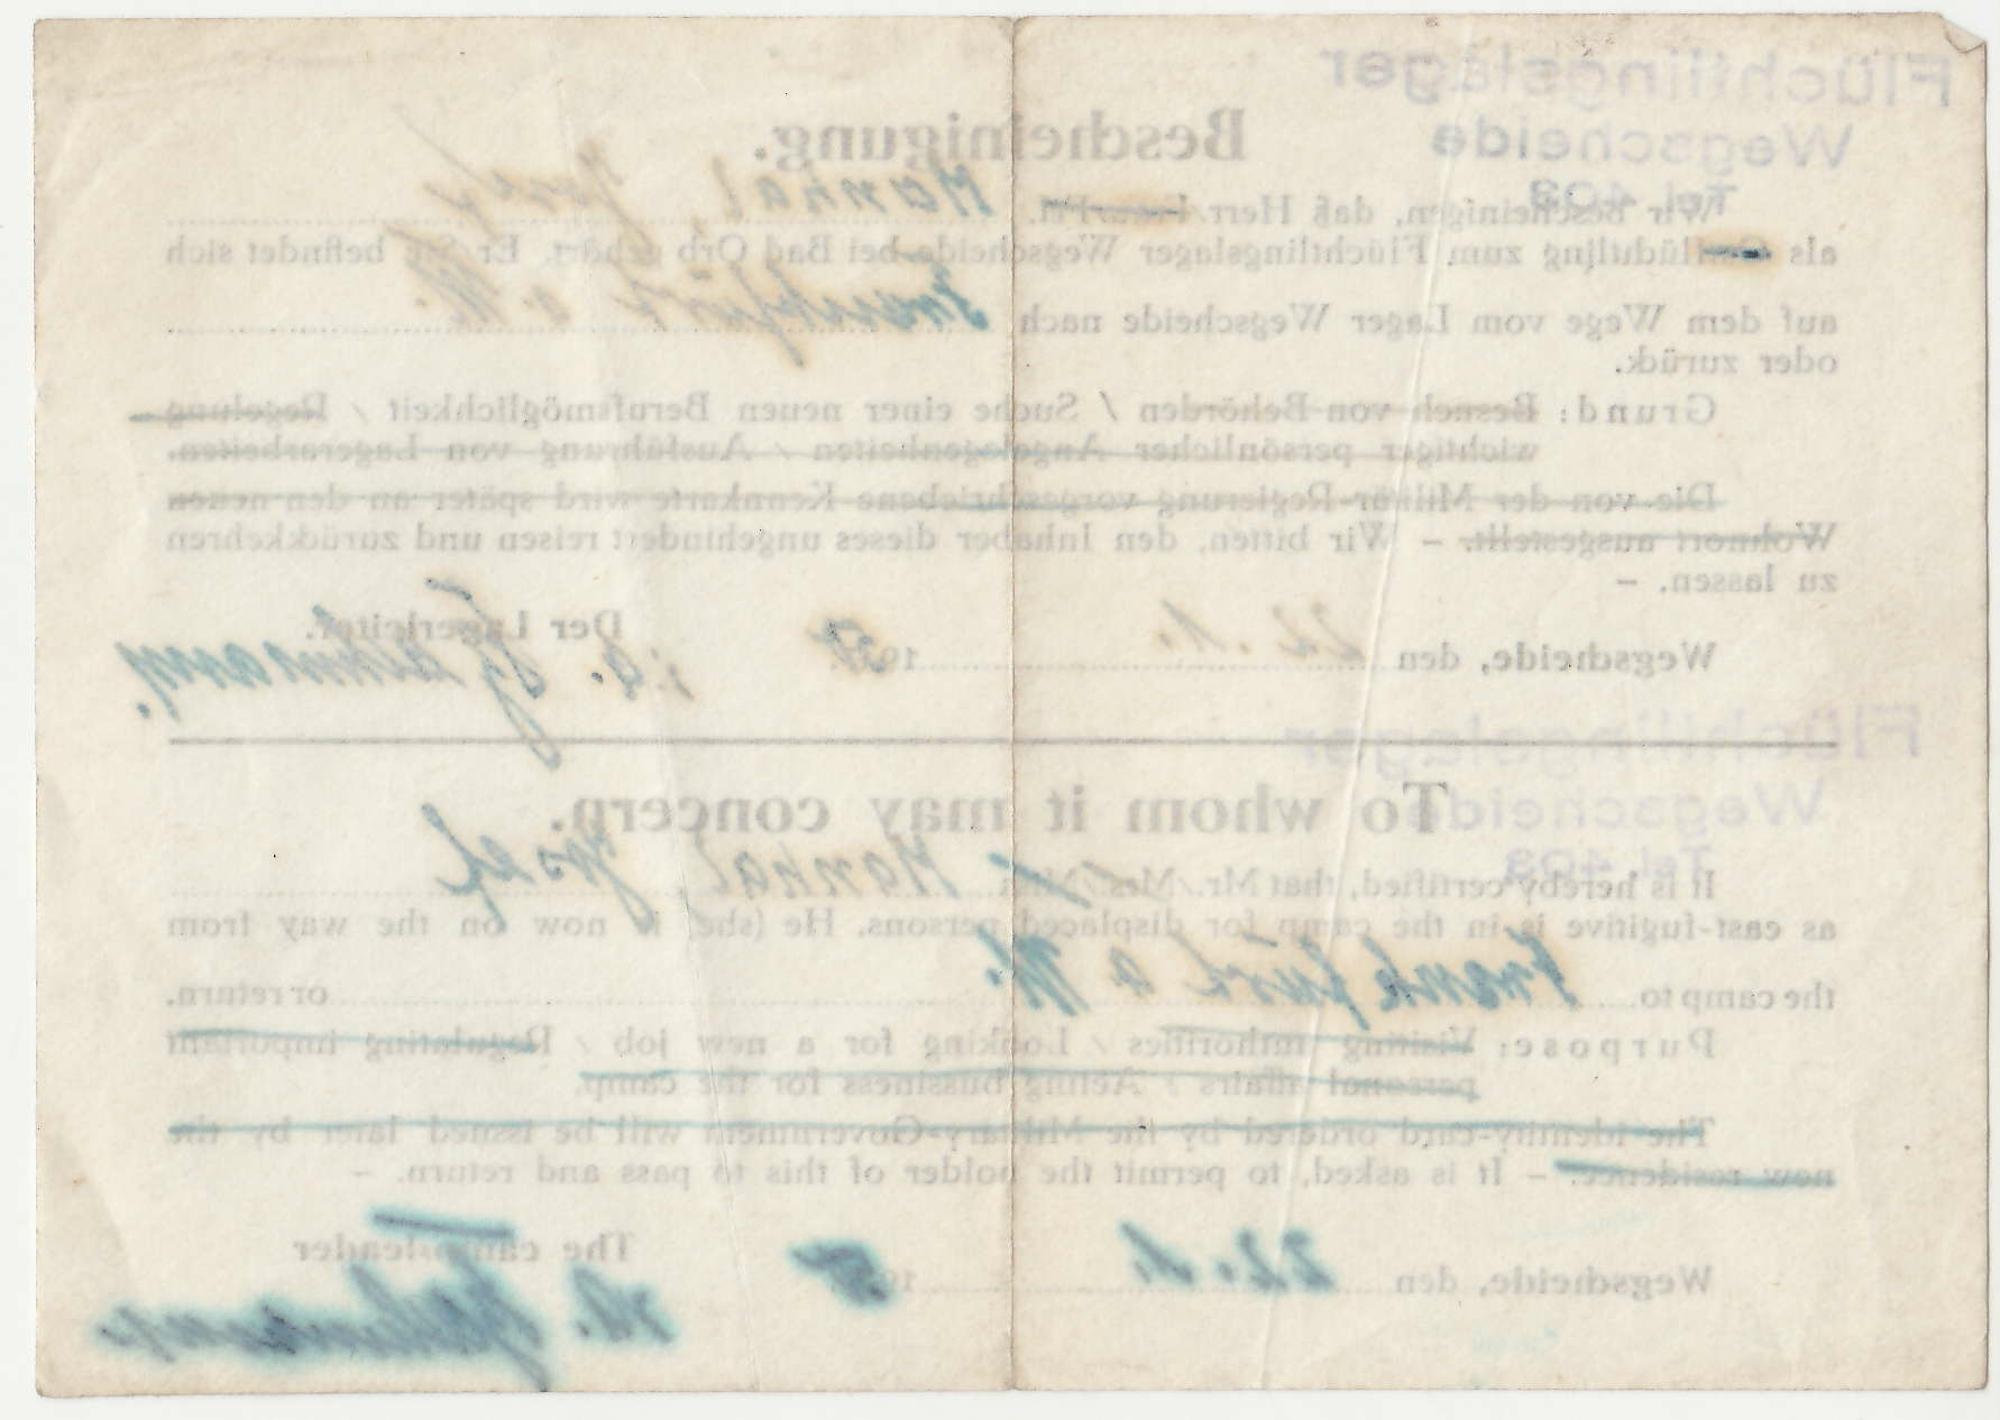 Flüchtlingslager
Wegscheide
Tel. 403
Bescheinigung.
Wir bescheinigen, daß Herr/Frau/Frl. Josef
als Ostflüchtling zum Flüchtlingslager Wegscheide bei Bad Orb gehört. Er/Sie befindet sich
auf dem Wege vom Lager Wegscheide nach Frankfurt a. M.
oder zurück.
Grund: Besuch von Behörden / Suche einer neuen Berufsmöglichkeit / Regelung
wichtiger persönlicher Angelegenheiten / Ausführung von Lagerarbeiten.
Die von der Militär-Regierung vorgeschriebene Kennkarte wird später an den neuen
Wohnort ausgestellt. – Wir bitten, den Inhaber dieses ungehindert reisen und zurückkehren
zu lassen. –
Wegscheide, den 22. 1. 1950
Der Lagerleiter.
i. A.
Flüchtlingslager
Wegscheide
Tel. 403
To whom it may concern.
It is hereby certified, that Mr./Mrs./Miss Josef
as east-fugitive is in the camp for displaced persons. He (she) is now on the way from
the camp to Frankfurt a. M. or return.
Purpose: Visiting authorities / Looking for a new job / Regulating important
personal affairs / Acting bussiness for the camp.
The identity-card ordered by the Military-Government will be issued later by the
now residence. – It is asked, to permit the holder of this to pass and return. –
Wegscheide, den 22. 1. 1950
The campsleader